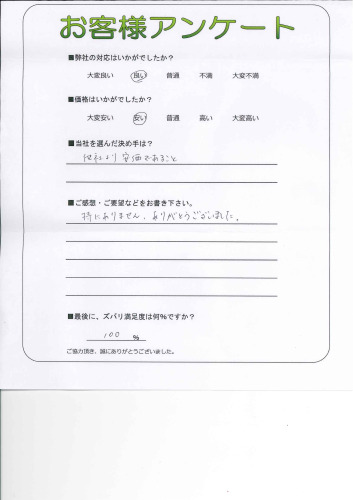 お客様アンケート
■弊社の対応はいかがでしたか?
大変良い 良い 普通 不満 大変不満
■価格はいかがでしたか?
大変安い 安い 普通 高い 大変高い
■当社を選んだ決め手は?
他社より安価であること
■ご感想・ご要望などをお書き下さい。
特にありません、ありがとうございました。
■最後に、ズバリ満足度は何%ですか?
100 %
ご協力頂き、誠にありがとうございました。